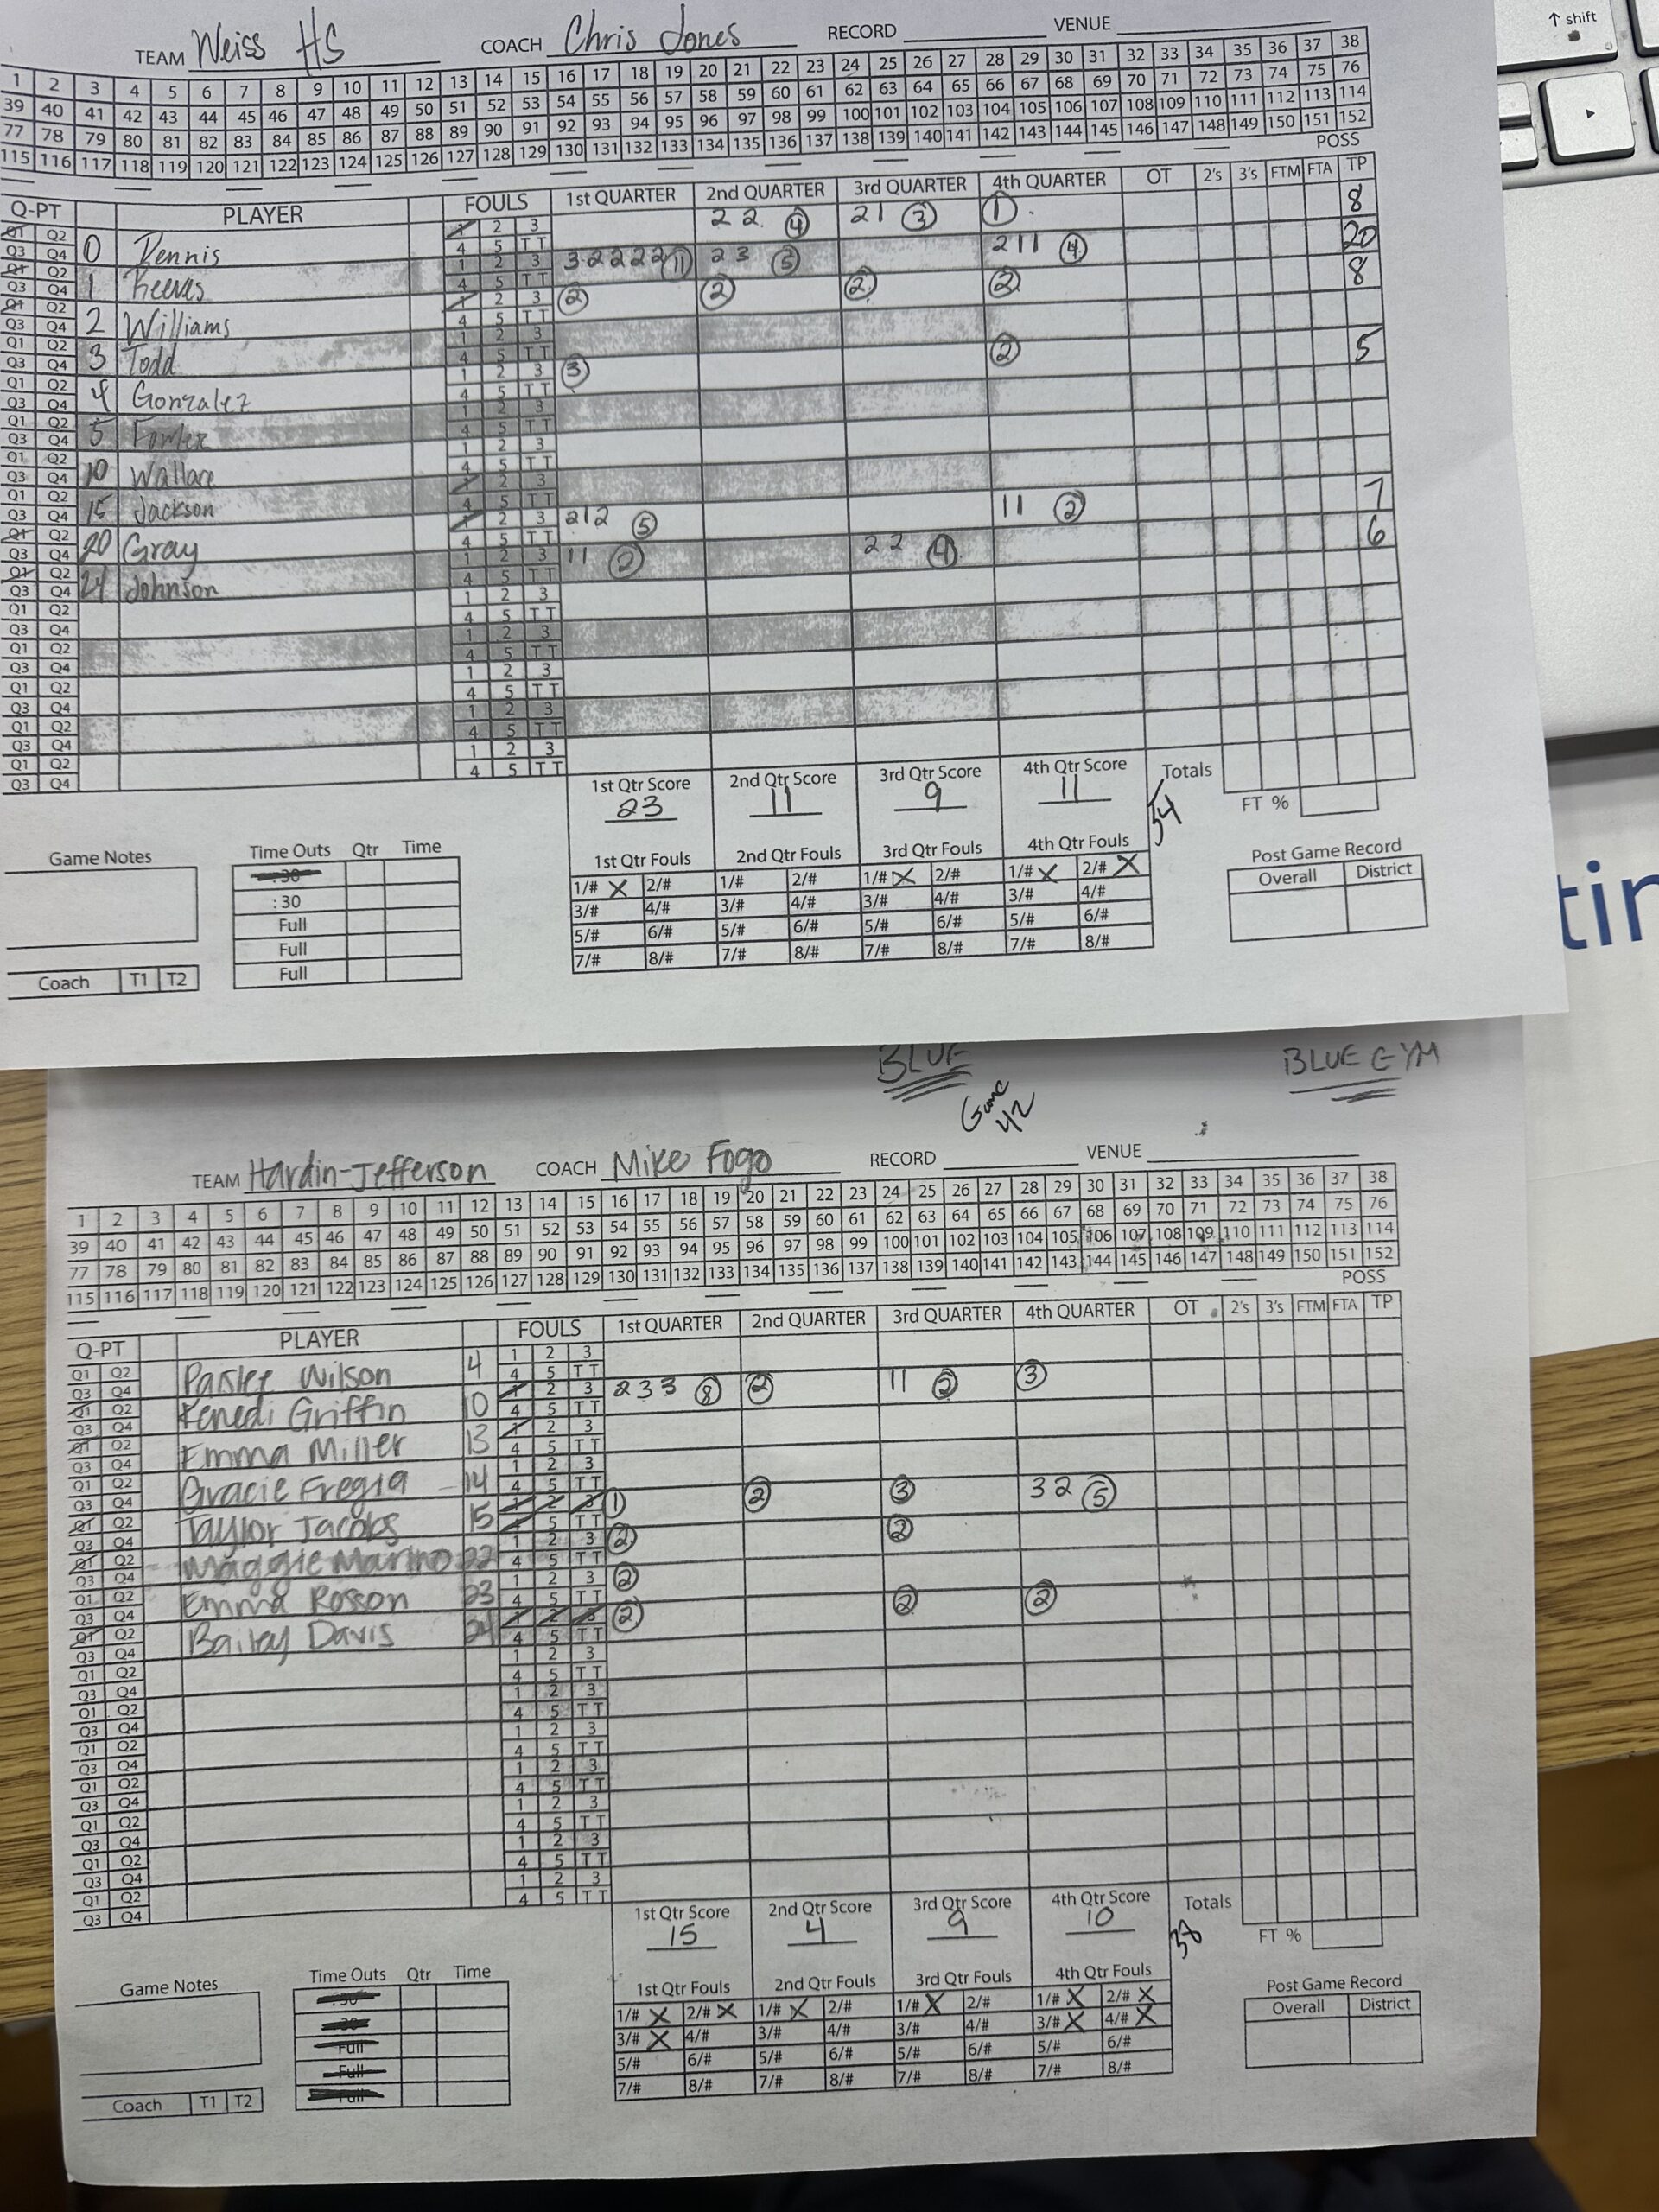 ↑ shift
TEAM Weiss HS COACH Chris Jones RECORD VENUE
1 2 3 4 5 6 7 8 9 10 11 12 13 14 15 16 17 18 19 20 21 22 23 24 25 26 27 28 29 30 31 32 33 34 35 36 37 38
39 40 41 42 43 44 45 46 47 48 49 50 51 52 53 54 55 56 57 58 59 60 61 62 63 64 65 66 67 68 69 70 71 72 73 74 75 76
77 78 79 80 81 82 83 84 85 86 87 88 89 90 91 92 93 94 95 96 97 98 99 100 101 102 103 104 105 106 107 108 109 110 111 112 113 114
115 116 117 118 119 120 121 122 123 124 125 126 127 128 129 130 131 132 133 134 135 136 137 138 139 140 141 142 143 144 145 146 147 148 149 150 151 152
POSS
Q-PT PLAYER FOULS 1st QUARTER 2nd QUARTER 3rd QUARTER 4th QUARTER OT 2's 3's FTM FTA TP
Q1 Q2 Q3 Q4 0 Dennis 1 2 3 4 5 T T 2 2 4 2 1 3 1 8
Q1 Q2 Q3 Q4 1 Reeves 1 2 3 4 5 T T 3 2 2 2 2 11 2 3 5 2 1 1 4 20
Q1 Q2 Q3 Q4 2 Williams 1 2 3 4 5 T T 2 2 2 2 8
Q1 Q2 Q3 Q4 3 Todd 1 2 3 4 5 T T
Q1 Q2 Q3 Q4 4 Gonzalez 1 2 3 4 5 T T 3 2 5
Q1 Q2 Q3 Q4 5 1 2 3 4 5 T T
Q1 Q2 Q3 Q4 10 Wallace 1 2 3 4 5 T T
Q1 Q2 Q3 Q4 15 Jackson 1 2 3 4 5 T T
Q1 Q2 Q3 Q4 20 Gray 1 2 3 4 5 T T 2 1 2 5 1 1 2 7
Q1 Q2 Q3 Q4 24 Johnson 1 2 3 4 5 T T 1 1 2 2 2 4 6
Q1 Q2 Q3 Q4 1 2 3 4 5 T T
Q1 Q2 Q3 Q4 1 2 3 4 5 T T
Q1 Q2 Q3 Q4 1 2 3 4 5 T T
Q1 Q2 Q3 Q4 1 2 3 4 5 T T
Q1 Q2 Q3 Q4 1 2 3 4 5 T T
1st Qtr Score 2nd Qtr Score 3rd Qtr Score 4th Qtr Score Totals
23 11 9 11 54
FT %
Game Notes Time Outs Qtr Time 1st Qtr Fouls 2nd Qtr Fouls 3rd Qtr Fouls 4th Qtr Fouls Post Game Record
: 30 1/# X 2/# 1/# 2/# 1/# X 2/# 1/# X 2/# X Overall District
: 30 3/# 4/# 3/# 4/# 3/# 4/# 3/# 4/#
Full 5/# 6/# 5/# 6/# 5/# 6/# 5/# 6/#
Full 7/# 8/# 7/# 8/# 7/# 8/# 7/# 8/#
Coach T1 T2 Full
tin
BLUE BLUE GYM
Game 42
TEAM Hardin-Jefferson COACH Mike Fogo RECORD VENUE
1 2 3 4 5 6 7 8 9 10 11 12 13 14 15 16 17 18 19 20 21 22 23 24 25 26 27 28 29 30 31 32 33 34 35 36 37 38
39 40 41 42 43 44 45 46 47 48 49 50 51 52 53 54 55 56 57 58 59 60 61 62 63 64 65 66 67 68 69 70 71 72 73 74 75 76
77 78 79 80 81 82 83 84 85 86 87 88 89 90 91 92 93 94 95 96 97 98 99 100 101 102 103 104 105 106 107 108 109 110 111 112 113 114
115 116 117 118 119 120 121 122 123 124 125 126 127 128 129 130 131 132 133 134 135 136 137 138 139 140 141 142 143 144 145 146 147 148 149 150 151 152
POSS
Q-PT PLAYER FOULS 1st QUARTER 2nd QUARTER 3rd QUARTER 4th QUARTER OT 2's 3's FTM FTA TP
Q1 Q2 Q3 Q4 Wilson 4 1 2 3 4 5 T T
Q1 Q2 Q3 Q4 Kenedi Griffin 10 1 2 3 4 5 T T 2 3 3 8 2 1 1 2 3
Q1 Q2 Q3 Q4 Emma Miller 13 1 2 3 4 5 T T
Q1 Q2 Q3 Q4 Gracie Fregia 14 1 2 3 4 5 T T
Q1 Q2 Q3 Q4 Taylor Jacobs 15 1 2 3 4 5 T T 1 2 3 3 2 5
Q1 Q2 Q3 Q4 Maggie Marino 22 1 2 3 4 5 T T 2 2
Q1 Q2 Q3 Q4 Emma Rosson 23 1 2 3 4 5 T T 2
Q1 Q2 Q3 Q4 Bailey Davis 24 1 2 3 4 5 T T 2 2 2
Q1 Q2 Q3 Q4 1 2 3 4 5 T T
Q1 Q2 Q3 Q4 1 2 3 4 5 T T
Q1 Q2 Q3 Q4 1 2 3 4 5 T T
Q1 Q2 Q3 Q4 1 2 3 4 5 T T
Q1 Q2 Q3 Q4 1 2 3 4 5 T T
Q1 Q2 Q3 Q4 1 2 3 4 5 T T
Q1 Q2 Q3 Q4 1 2 3 4 5 T T
1st Qtr Score 2nd Qtr Score 3rd Qtr Score 4th Qtr Score Totals
15 4 9 10 38
FT %
Game Notes Time Outs Qtr Time 1st Qtr Fouls 2nd Qtr Fouls 3rd Qtr Fouls 4th Qtr Fouls Post Game Record
: 30 1/# X 2/# X 1/# X 2/# 1/# X 2/# 1/# X 2/# X Overall District
: 30 3/# X 4/# 3/# 4/# 3/# 4/# 3/# X 4/# X
Full 5/# 6/# 5/# 6/# 5/# 6/# 5/# 6/#
Full 7/# 8/# 7/# 8/# 7/# 8/# 7/# 8/#
Coach T1 T2 Full